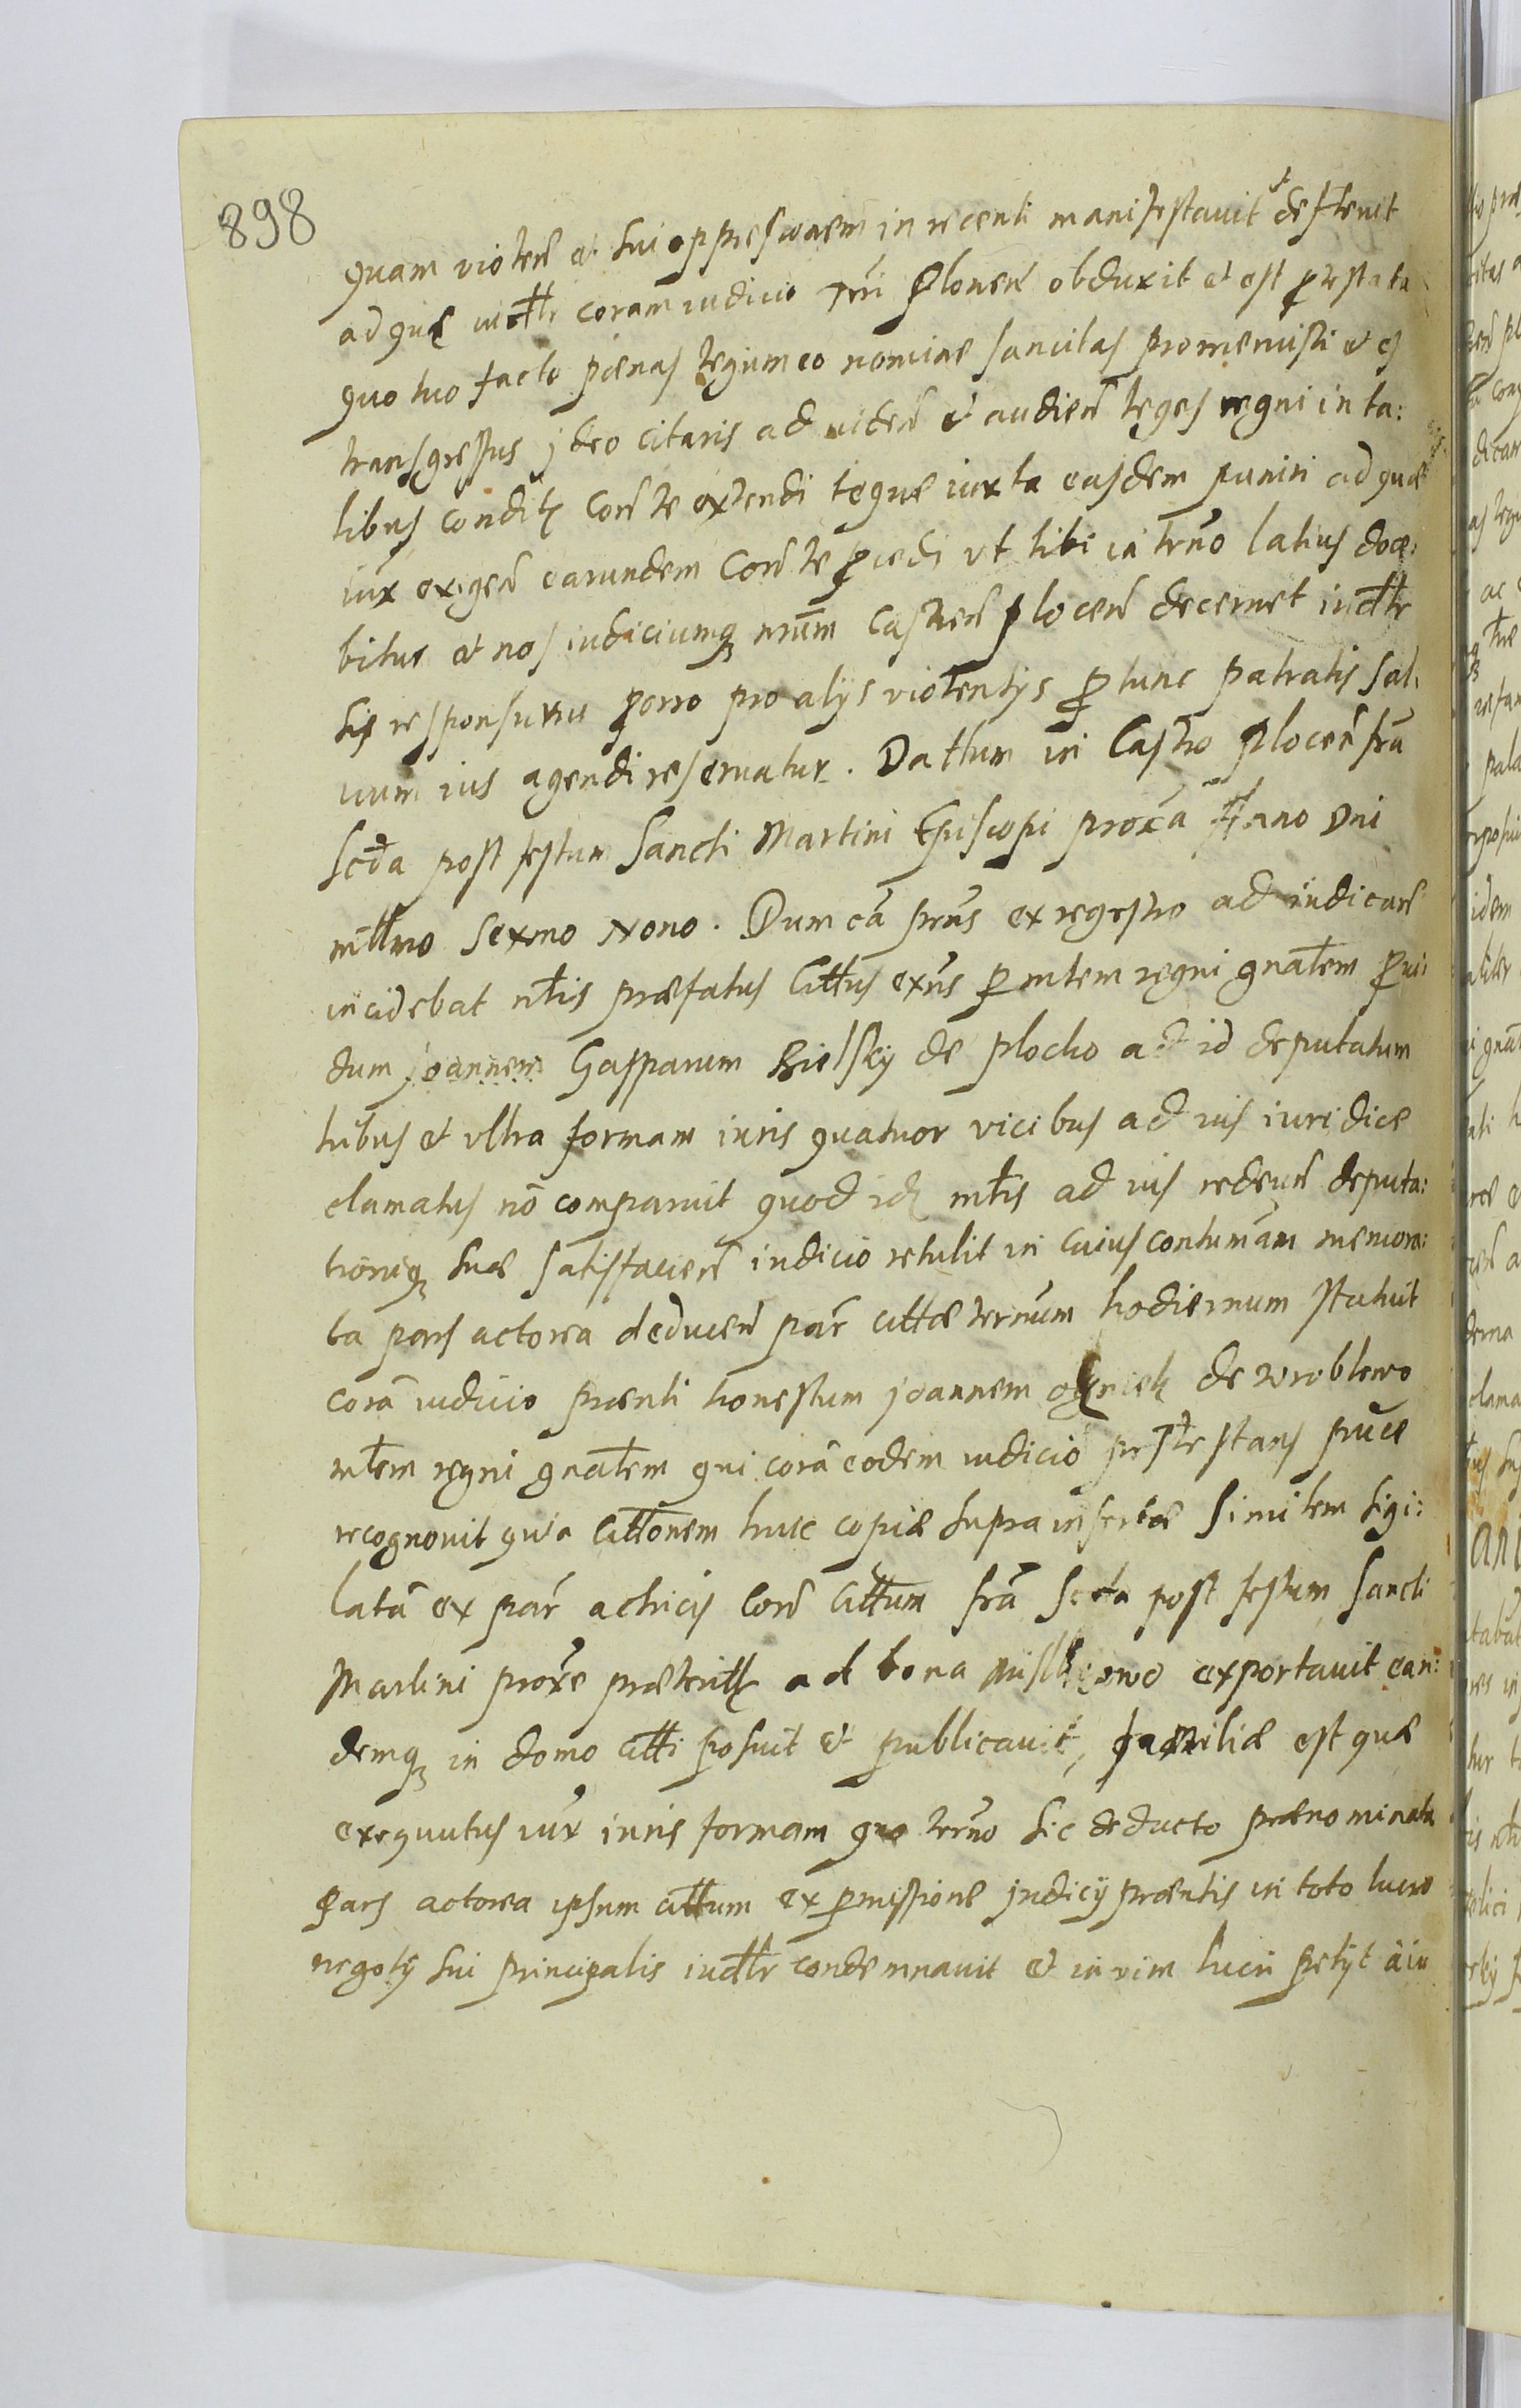 898
quam violen et sui oppressionem in recenti manifestauit et deflevit
ad quę iudtr coram iudicio nri Plonen obduxit et est p̱testata
quo tuo facto pœnas legum eo nomine sancitas promeruisti et es
transgressus ideo citaris ad uiden et audien leges regni in ta:
libus condits Con te extendi teque iuxta easdem puniri ad quæ
iux exigen earundem Con te p̱cedi vt tibi in trno latius doce:
bitur et nos iudiciumq nrum Castren plocen decernet iudtr
sis responsurus porro pro alijs violentijs p̱ tunc patratis sal:
uum ius agendi reseruatur. Dattum in Castro plocen fra
Scda post festum Sancti Martini Episcopi proxa Anno Dni
mttmo Sexmo Nono. Dum ca pns ex regestro ad iudicand
incidebat ntis præfatus Cittus exns p̱ mtem regni gnatem p̱ui
dum joannem Gasparum Bielsky de plocko ad id deputatum
tribus et vltra formam iuris quatuor vicibus ad ius iuridice
clamatus no comparuit quod ids mtis ad ius rediens deputa:
tioniq suæ satisfacien iudicio retulit in cuius contumam memora:
ta pars actorea deducen par cittæ ternum hodiernum statuit
cora iudicio prænti honestum joannem de wroblewo
mtem regni gnatem qui cora eodem iudicio pntr stans puce
recognouit quia Cittonem huic copiæ supra insertæ Similem sigi:
lata ex par actricis Con Cittum fra Scda post festum Sancti
Martini proxe præteritts ad bona exportauit ean:
demq in domo citti posuit et publicauit, familiæ estquæ
exequutus iux iuris formam quo terno sic deducto prænominata
Pars actorea ipsum cittum ex p̱missione judicij præntis in toto lucro
negotij sui principalis iudtr condemnauit et in vim lucri petijt a iu